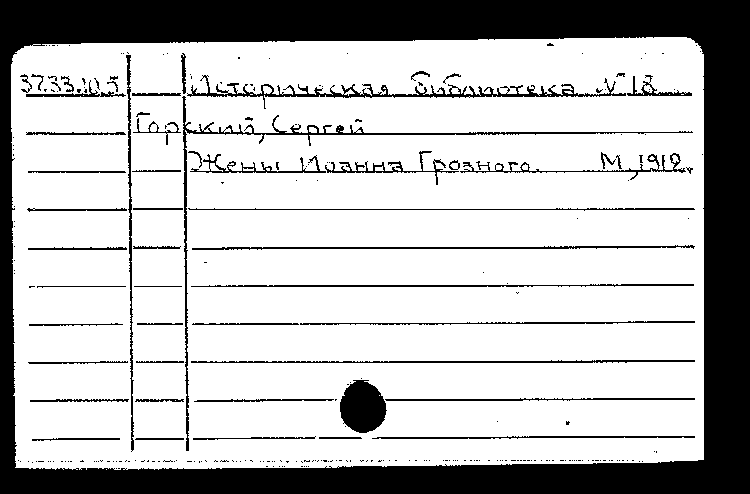 37.33.10.5 Историческая библиотека № 18
Горский, Сергей
Жены Иоанна Грозного. М., 1912.